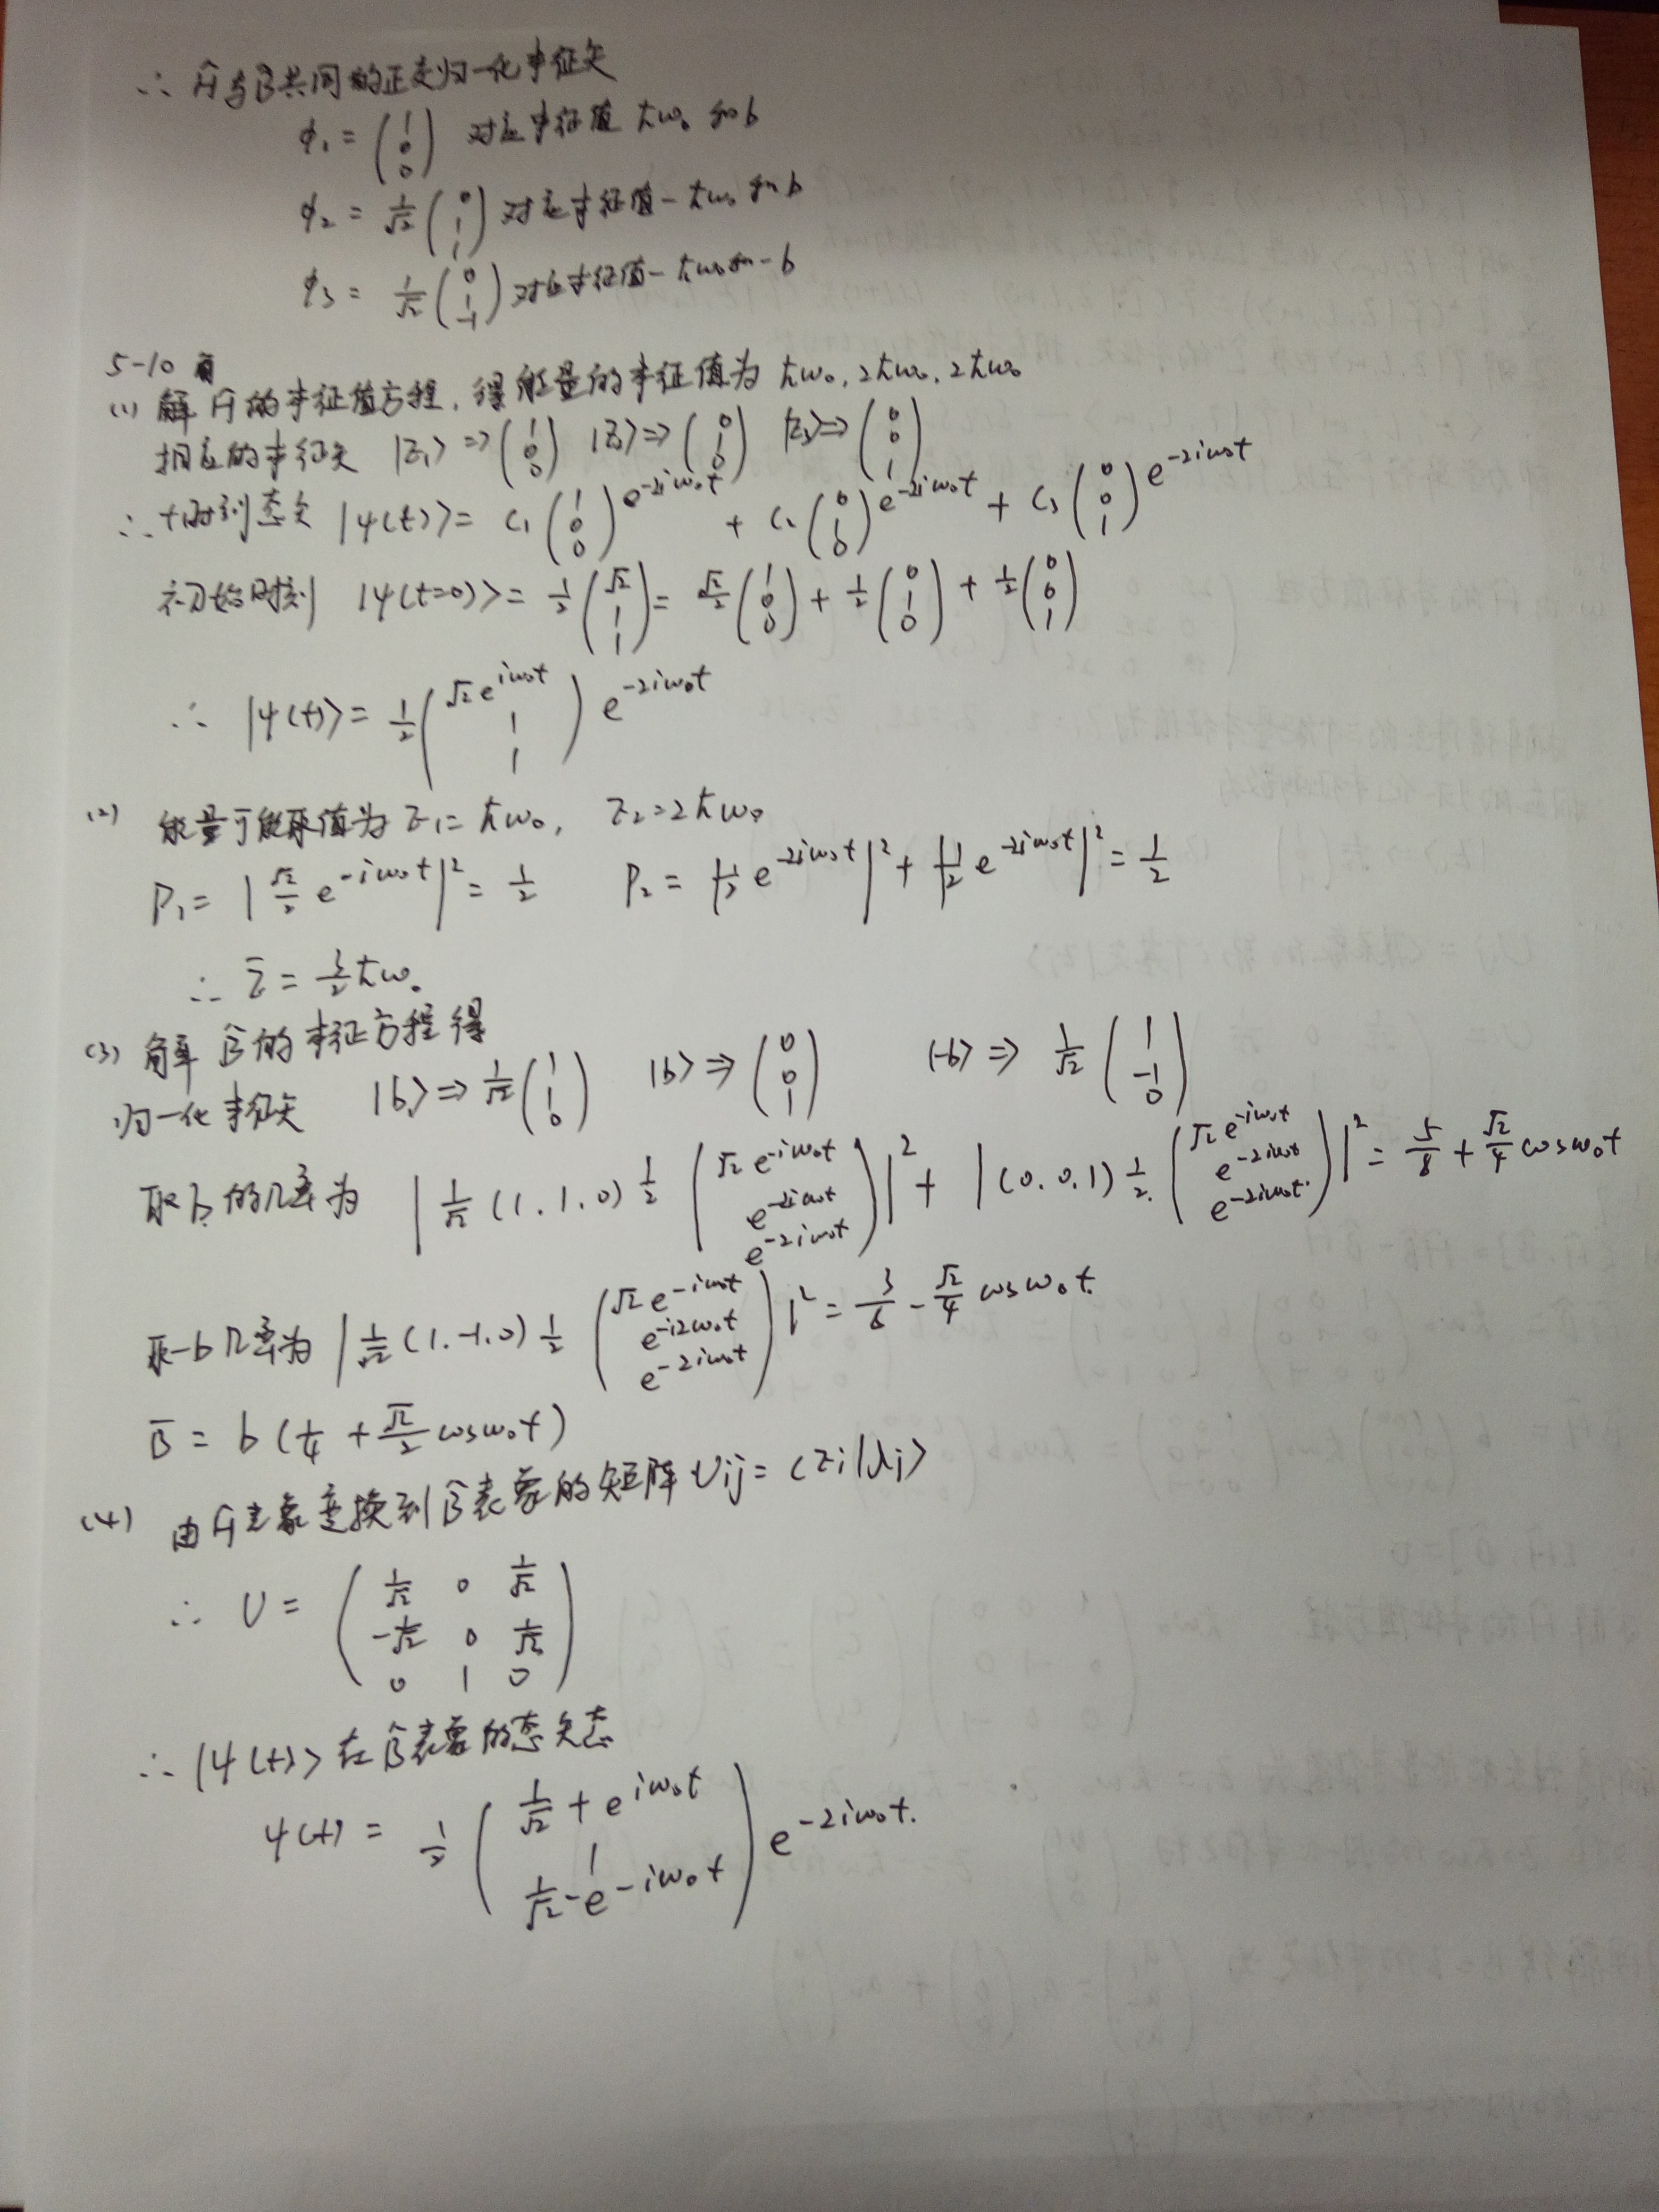 ∴ Ĥ与B̂共同的正交归一化本征矢
φ₁ = (1 0 0) 对应本征值 ħω₀ 和 b
φ₂ = 1/√2 (0 1 1) 对应本征值 -ħω₀ 和 b
φ₃ = 1/√2 (0 1 -1) 对应本征值 -ħω₀ 和 -b
5-10
(1) 解Ĥ的本征值方程，得能量的本征值为 ħω₀, 2ħω₀, 2ħω₀
相应的本征矢 |E₁> ⇒ (1 0 0) |E₂> ⇒ (0 1 0) |E₃> ⇒ (0 0 1)
∴ t时刻态矢 |ψ(t)> = C₁ (1 0 0) e^(-2iω₀t) + C₂ (0 1 0) e^(-2iω₀t) + C₃ (0 0 1) e^(-2iω₀t)
初始时刻 |ψ(t=0)> = 1/2 (√2 1 1) = √2/2 (1 0 0) + 1/2 (0 1 0) + 1/2 (0 0 1)
∴ |ψ(t)> = 1/2 (√2e^(iω₀t) 1 1) e^(-2iω₀t)
(2) 能量可能取值为 E₁ = ħω₀, E₂ = 2ħω₀
P₁ = |√2/2 e^(-iω₀t)|² = 1/2 P₂ = |1/2 e^(-2iω₀t)|² + |1/2 e^(-2iω₀t)|² = 1/2
∴ Ē = 3/2 ħω₀
(3) 解B̂的本征方程得
归一化本征矢 |b₁> ⇒ 1/√2 (1 1 0) |b> ⇒ (0 0 1) |-b> ⇒ 1/√2 (1 -1 0)
取b的几率为 |1/√2 (1, 1, 0) 1/2 (√2e^(-iω₀t) e^(-2iω₀t) e^(-2iω₀t))|² + |(0, 0, 1) 1/2 (√2e^(-iω₀t) e^(-2iω₀t) e^(-2iω₀t))|² = 5/8 + √2/4 cosω₀t
取-b几率为 |1/√2 (1, -1, 0) 1/2 (√2e^(-iω₀t) e^(-i2ω₀t) e^(-2iω₀t))|² = 3/8 - √2/4 cosω₀t
B̄ = b(1/4 + √2/2 cosω₀t)
(4) 由Ĥ表象变换到B̂表象的矩阵 Uij = <Ei|λj>
∴ U = (1/√2 0 1/√2
-1/√2 0 1/√2
0 1 0)
∴ |ψ(t)> 在B̂表象的态矢态
ψ(t) = 1/2 (1/√2 + e^(iω₀t) 1 1/√2 - e^(-iω₀t)) e^(-2iω₀t)